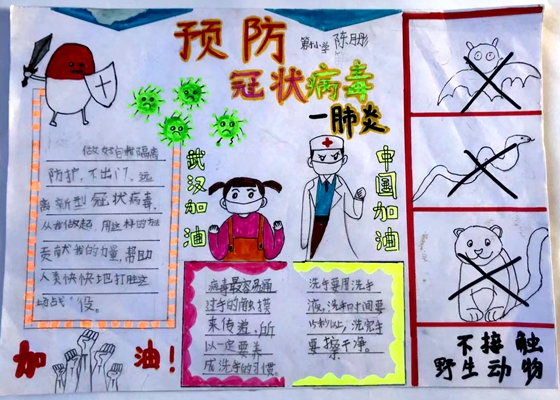 预防
第小学 陈月彤
冠状病毒
一肺炎
武汉加油
中国加油
做好自我隔离
防护，不出门，远
离新型冠状病毒，
从我做起，用这样的方法
贡献我的力量，帮助
人类快快地打胜这
场战"役。
加油！
病毒最容易通
过手的触摸
来传播，所
以一定要养
成洗手的习惯
洗手要用洗手
液，洗手时间要
15秒以上，洗完手
要擦干净。
不接触
野生动物